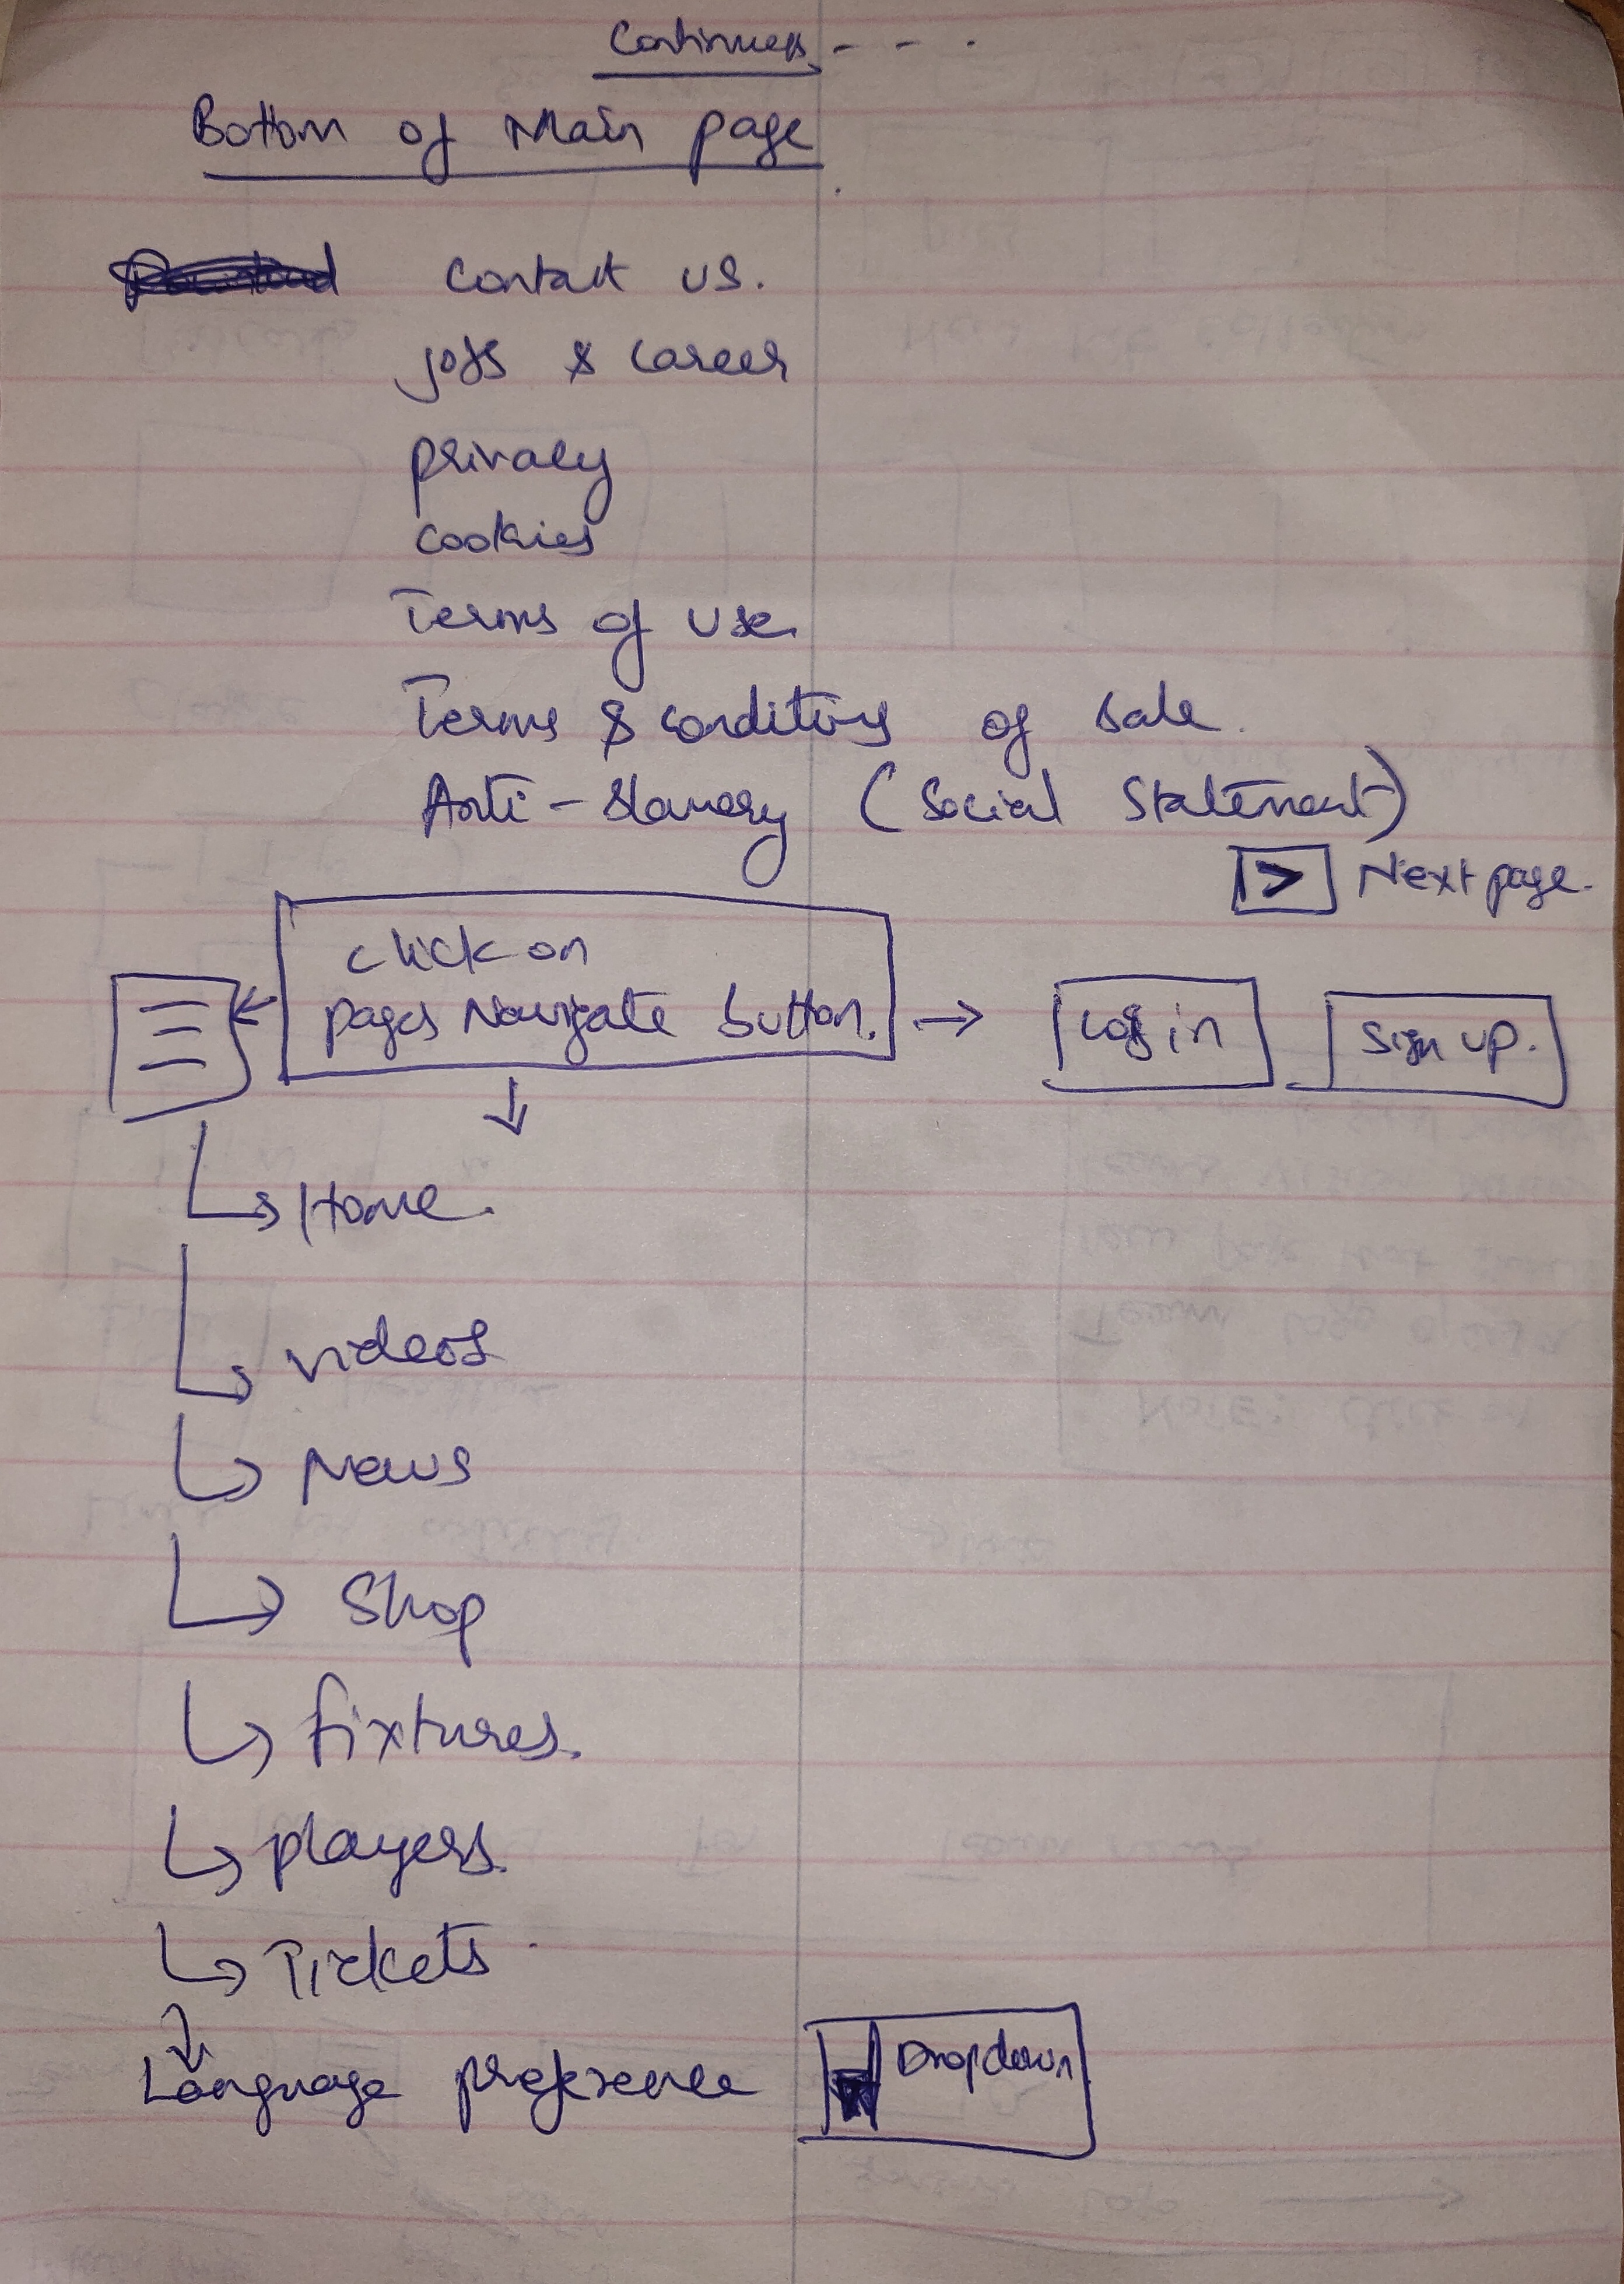 Continues - - -
Bottom of Main page
Contact us.
jobs & career
privacy
cookies
Terms of use
Terms & conditions of sale.
Anti-Slavery (Social Statement)
> Next page.
click on
pages Navigate button. → Log in Sign up.
Home.
videos
News
Shop
fixtures.
players.
Tickets
Language preference Dropdown